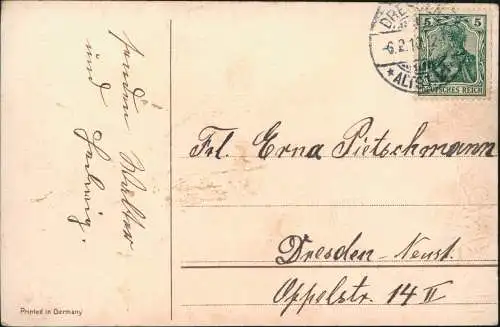 senden Walter
und Hedwig.
DRESDEN
6.2.1
*ALTST
5 5
DEUTSCHES REICH
Frl. Erna Pietschmann
Dresden-Neust.
Oppelstr. 14 II
Printed in Germany